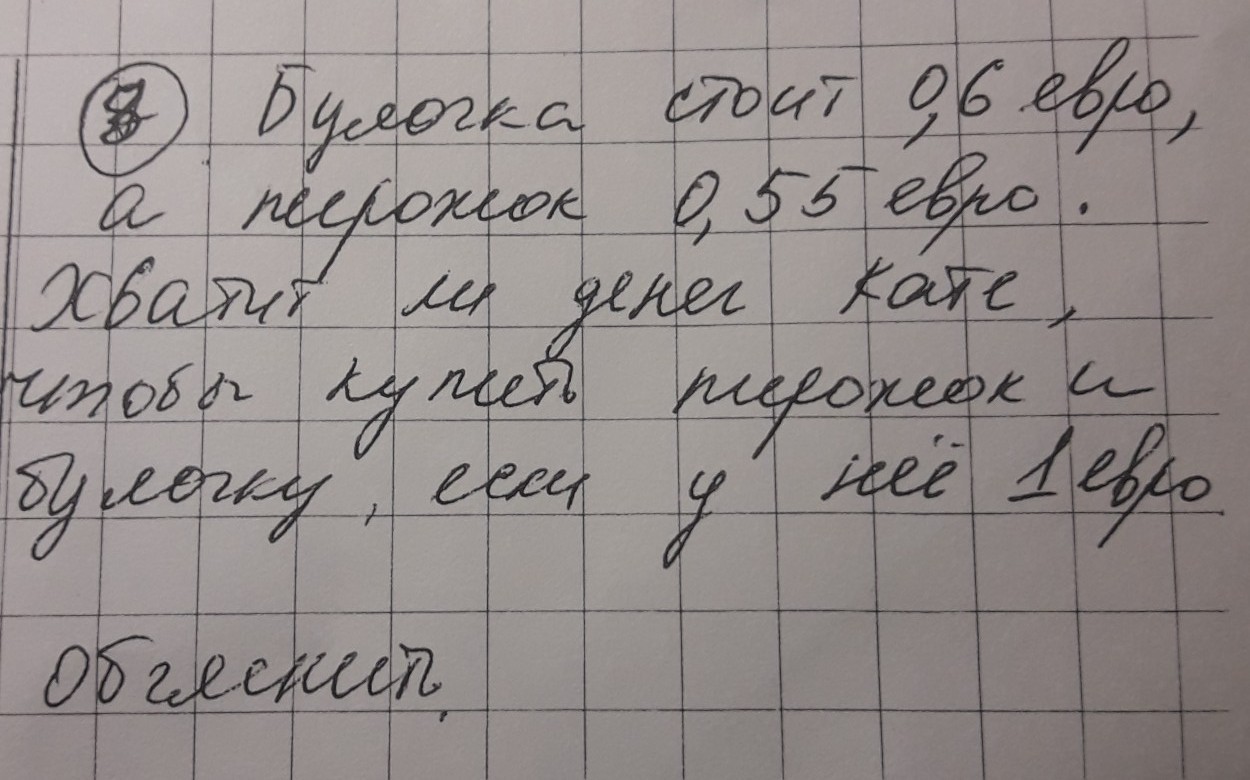 Булочка стоит 0,6 евро,
а пирожок 0,55 евро.
Хватит ли денег Кате,
чтобы купить пирожок и
булочку, если у неё 1 евро
Объяснить.